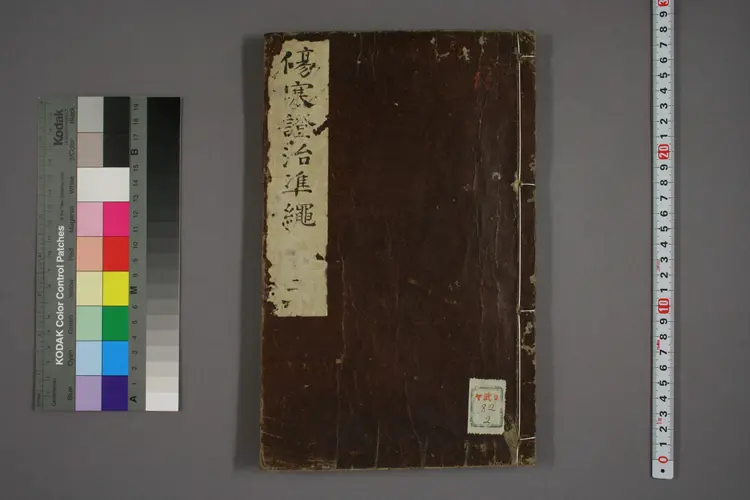 傷寒證治準繩
二
KODAK Color Control Patches
Kodak
Blue
Cyan
Green
Yellow
Red
Magenta
White
3/Color
Black
A
M
B
1 2 3 4 5 6 7 8 9 10 11 12 13 14 15 16 17 18 19
92
2
0 1 2 3 4 5 6 7 8 9 10 1 2 3 4 5 6 7 8 9 20 1 2 3 4 5 6 7 8 9 3